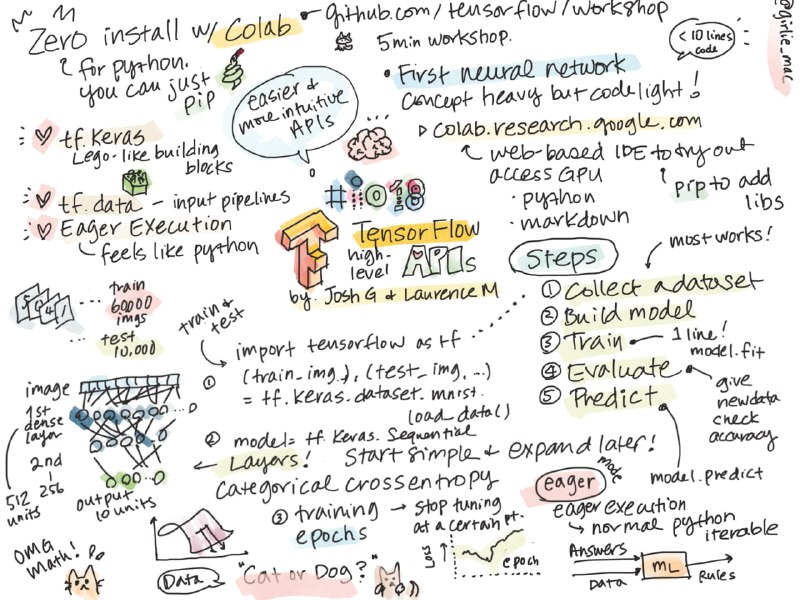 Zero install w/ Colab
github.com/tensorflow/workshop
5min workshop.
<10 lines
code
@girlie_mac
for python.
you can just
pip
easier &
more intuitive
APIs
First neural network
concept heavy but code light!
colab.research.google.com
web-based IDE to try out
access GPU
· python
· markdown
pip to add
libs
tf.keras
Lego-like building
blocks
tf.data - input pipelines
Eager Execution
feels like python
#io18
TensorFlow
high-
level APIs
by. Josh G & Laurence M
Steps
most works!
① Collect a dataset
② Build model
③ Train
1 line!
model.fit
④ Evaluate
give
new data
check
accuracy
⑤ Predict
model.predict
5041
... train
60000
imgs
... test
10,000
train &
test
import tensorflow as tf
① (train_img..), (test_img, ...)
= tf.keras.dataset.mnist.
load_data()
② model = tf.Keras.Sequential
Layers! Start simple & expand later!
categorical crossentropy
③ training
epochs
→ stop tuning
at a certain pt.
loss
epoch
image
1st
dense
layer
2nd
512
units
256
output
10 units
eager mode
eager execution
normal python
iterable
OMG
Math!
Data
"Cat or Dog?"
Answers
Data
ML
Rules